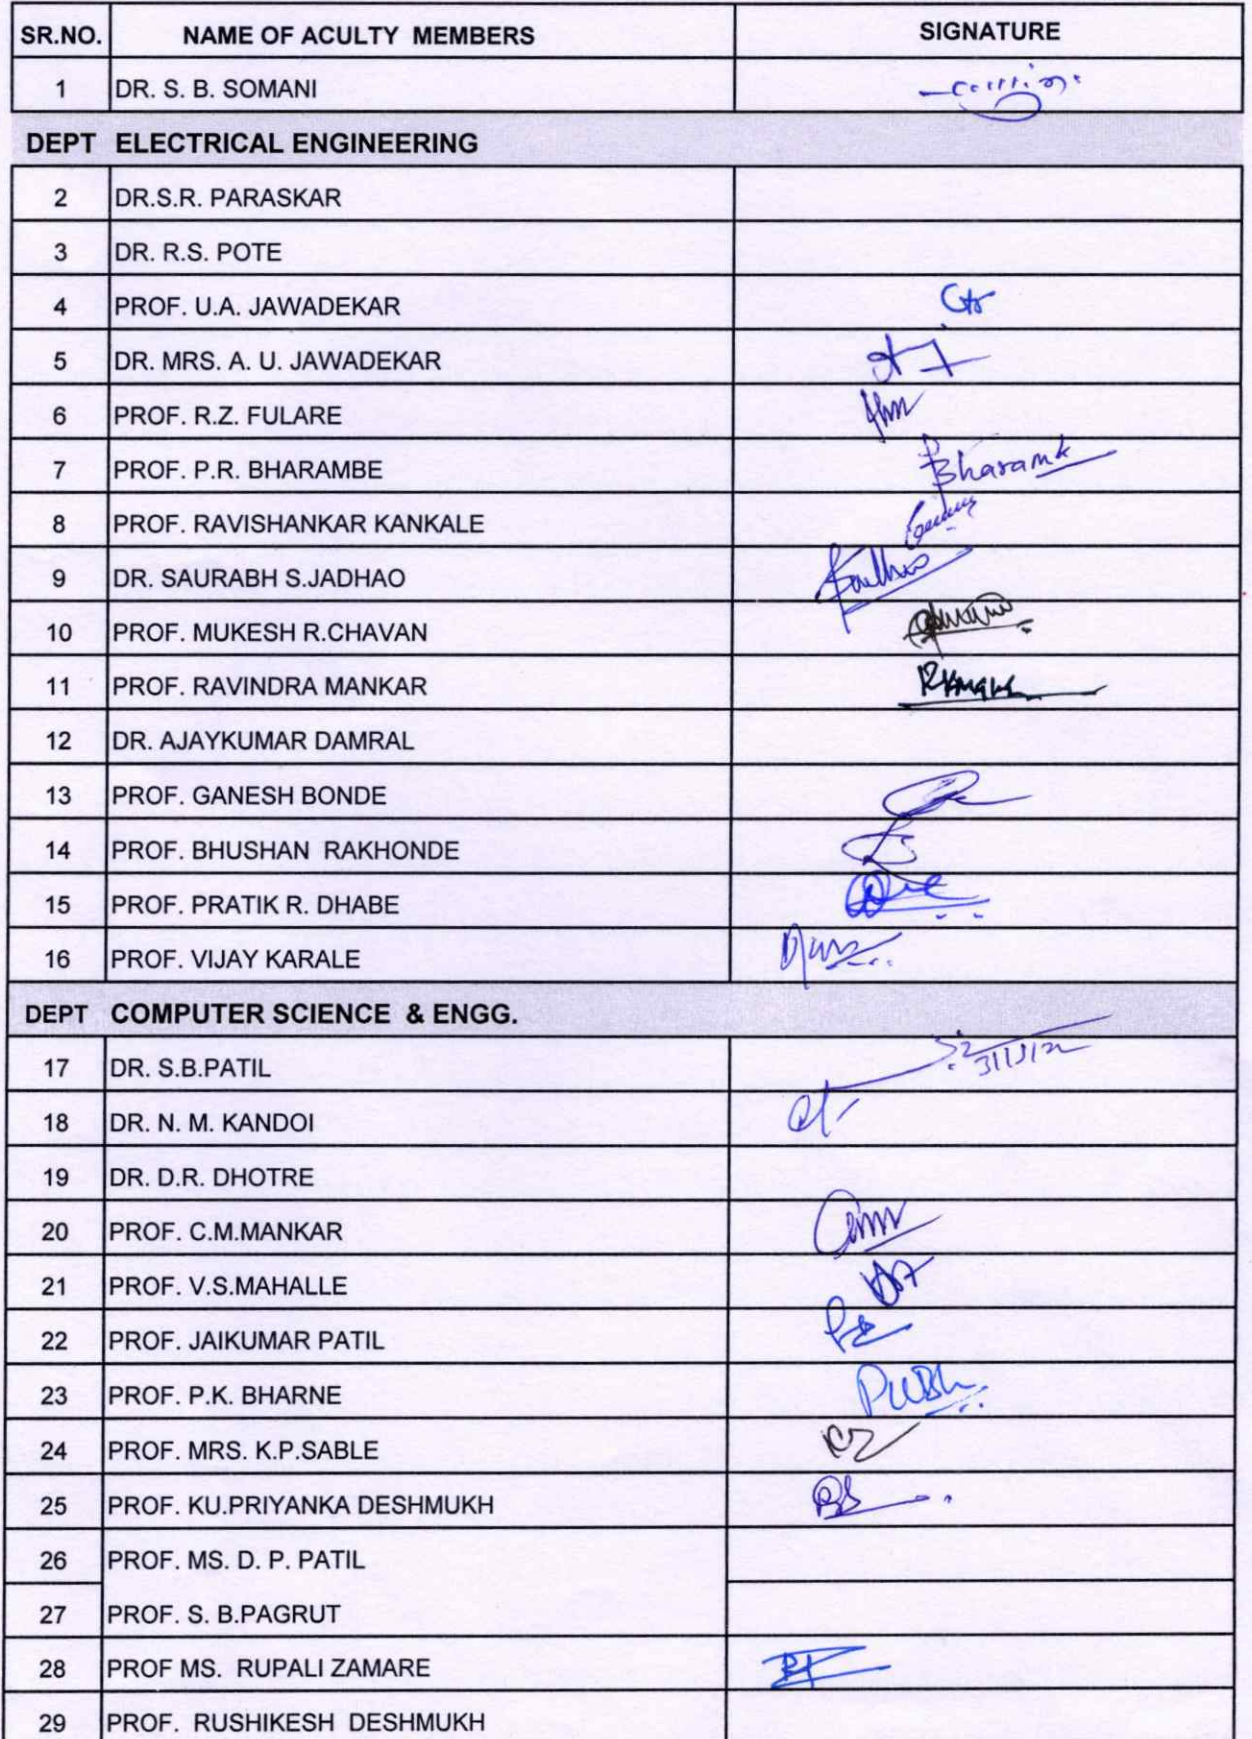 SR.NO. NAME OF ACULTY MEMBERS SIGNATURE
1 DR. S. B. SOMANI
DEPT ELECTRICAL ENGINEERING
2 DR.S.R. PARASKAR
3 DR. R.S. POTE
4 PROF. U.A. JAWADEKAR
5 DR. MRS. A. U. JAWADEKAR
6 PROF. R.Z. FULARE
7 PROF. P.R. BHARAMBE
8 PROF. RAVISHANKAR KANKALE
9 DR. SAURABH S.JADHAO
10 PROF. MUKESH R.CHAVAN
11 PROF. RAVINDRA MANKAR
12 DR. AJAYKUMAR DAMRAL
13 PROF. GANESH BONDE
14 PROF. BHUSHAN RAKHONDE
15 PROF. PRATIK R. DHABE
16 PROF. VIJAY KARALE
DEPT COMPUTER SCIENCE & ENGG.
17 DR. S.B.PATIL
18 DR. N. M. KANDOI
19 DR. D.R. DHOTRE
20 PROF. C.M.MANKAR
21 PROF. V.S.MAHALLE
22 PROF. JAIKUMAR PATIL
23 PROF. P.K. BHARNE
24 PROF. MRS. K.P.SABLE
25 PROF. KU.PRIYANKA DESHMUKH
26 PROF. MS. D. P. PATIL
27 PROF. S. B.PAGRUT
28 PROF MS. RUPALI ZAMARE
29 PROF. RUSHIKESH DESHMUKH